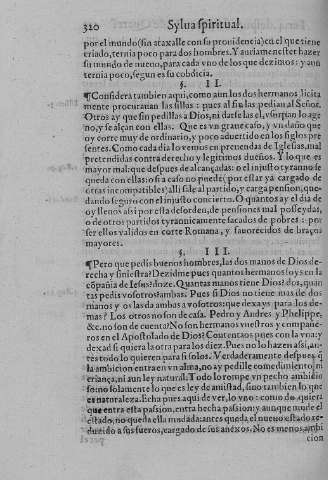 320 Sylua spiritual.
por el mundo (sin atajalle con su prouidencia) en el que tiene
criado, ternia poco para dos hombres. Y auria menester hazer
su mundo de nueuo, para cada vno de los que dezimos: y aun
ternia poco, segun es su cobdicia.
§. II.
¶Considera tambien aqui, como aun los dos hermanos licita
mente procurauan las sillas: pues al fin las pedian al Señor.
Otros ay que sin pedillas a Dios, ni darselas el, vsurpan lo age
no, y se alçan con ellas. Que es vn graue caso, y vn daño que
oy corre muy de ordinario, y poco aduertido en los siglos pre
sentes. Como cada dia lo vemos en prebendas de Iglesias, mal
pretendidas contra derecho y legitimos dueños. Y lo que es
mayor mal: que despues de alcançadas: o el injusto tyranno se
queda con ellas: o si a caso no puede (por estar ya cargado de
otras incompatibles) alli sale al partido, y carga pension, que-
dando seguro con el injusto concierto. O quantos ay el dia de
oy llenos assi por esta desorden, de pensiones mal posseydas,
o de otros partidos tyrannicamente sacados de pobres: por
ser ellos validos en corte Romana, y fauorecidos de braços
mayores.
§. III.
¶Pero que pedis buenos hombres, las dos manos de Dios de-
recha y siniestra? Dezidme pues quantos hermanos soys en la
cõpañia de Iesus? doze. Quantas manos tiene Dios? dos, quan
tas pedis vosotros? ambas. Pues si Dios no tiene mas de dos
manos y os las da ambas a vosotros: que dexays para los de-
mas? Los otros no son de casa. Pedro y Andres y Phelippe,
&c. no son de cuenta? No son hermanos vuestros y compañe-
ros en el Apostolado de Dios? Contentaos pues con la vna: y
dexad si quiera la otra para los diez. Pues no lo hazen assi, an-
tes todo lo quieren para si solos. Verdaderamente despues q̃
la ambicion entra en vn alma, no ay pedille comedimiento, ni
criança, ni aun ley natural. Todo lo rompe vn pecho ambicio
so: no solamente lo que es ley de amistad, sino tambien lo que
es naturaleza. Echa pues aqui de ver, lo vno: como do quiera
que entra esta passion, entra hecha passion: y aunque mude el
estado, no queda ella mudada: antes queda el nueuo estado re-
ducido a sus fueros, cargado de sus anexos. No es menos ambi
cion